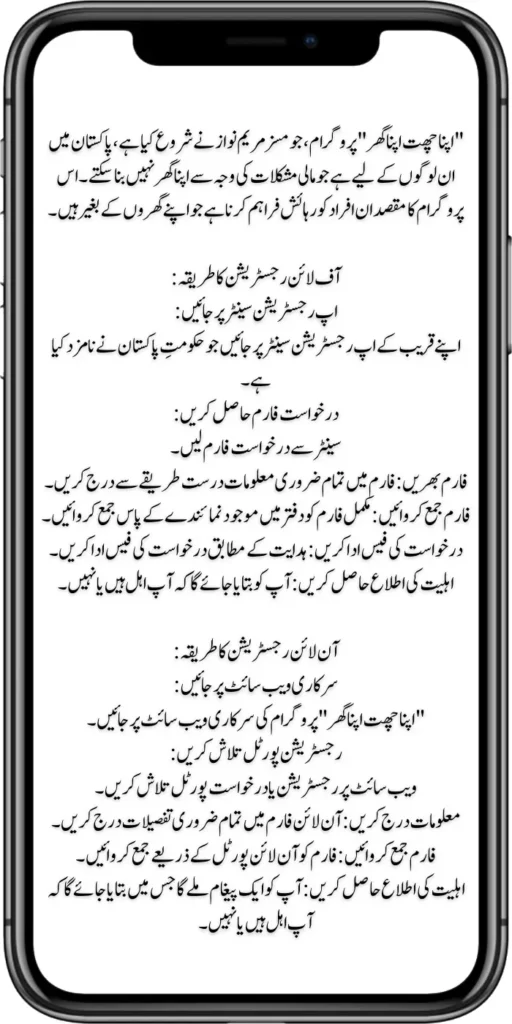 "اپنا چھت اپنا گھر" پروگرام، جو مسز مریم نواز نے شروع کیا ہے، پاکستان میں
ان لوگوں کے لیے ہے جو مالی مشکلات کی وجہ سے اپنا گھر نہیں بنا سکتے۔ اس
پروگرام کا مقصد ان افراد کو رہائش فراہم کرنا ہے جو اپنے گھروں کے بغیر ہیں۔
آف لائن رجسٹریشن کا طریقہ:
اپ رجسٹریشن سینٹر پر جائیں:
اپنے قریب کے اپ رجسٹریشن سینٹر پر جائیں جو حکومتِ پاکستان نے نامزد کیا
ہے۔
درخواست فارم حاصل کریں:
سینٹر سے درخواست فارم لیں۔
فارم بھریں: فارم میں تمام ضروری معلومات درست طریقے سے درج کریں۔
فارم جمع کروائیں: مکمل فارم کو دفتر میں موجود نمائندے کے پاس جمع کروائیں۔
درخواست کی فیس ادا کریں: ہدایت کے مطابق درخواست کی فیس ادا کریں۔
اہلیت کی اطلاع حاصل کریں: آپ کو بتایا جائے گا کہ آپ اہل ہیں یا نہیں۔
آن لائن رجسٹریشن کا طریقہ:
سرکاری ویب سائٹ پر جائیں:
"اپنا چھت اپنا گھر" پروگرام کی سرکاری ویب سائٹ پر جائیں۔
رجسٹریشن پورٹل تلاش کریں:
ویب سائٹ پر رجسٹریشن یا درخواست پورٹل تلاش کریں۔
معلومات درج کریں: آن لائن فارم میں تمام ضروری تفصیلات درج کریں۔
فارم جمع کروائیں: فارم کو آن لائن پورٹل کے ذریعے جمع کروائیں۔
اہلیت کی اطلاع حاصل کریں: آپ کو ایک پیغام ملے گا جس میں بتایا جائے گا کہ
آپ اہل ہیں یا نہیں۔